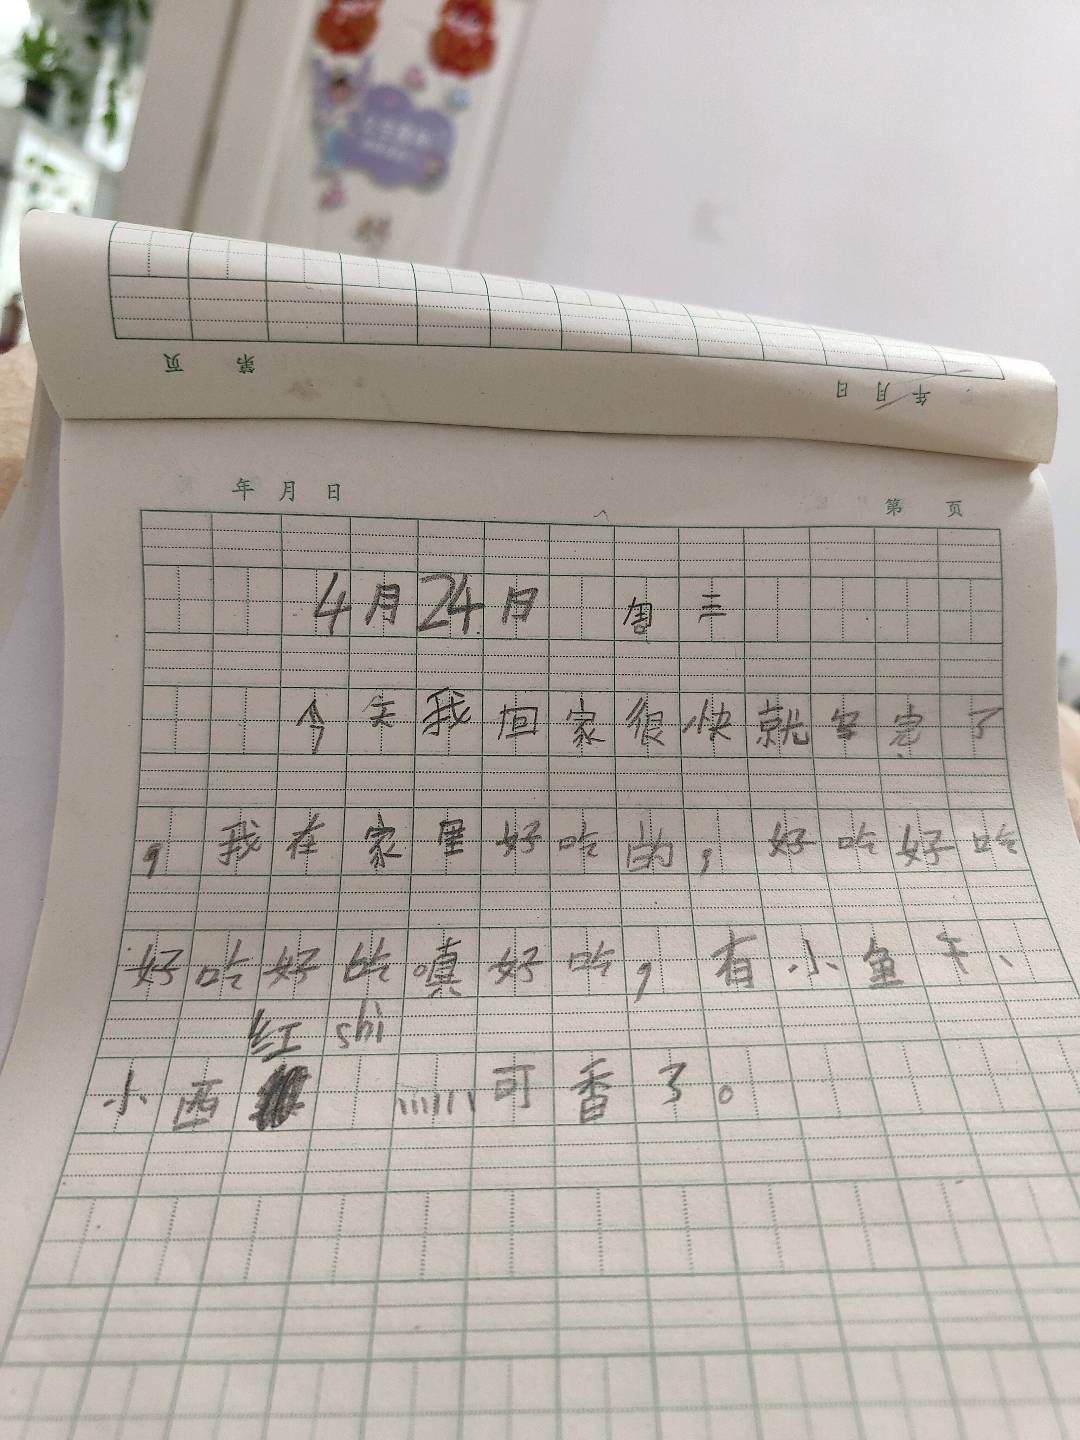 页 第
日 月 年
年 月 日 第 页
4月24日 周三
今天我回家很快就写完了
，我在家里好吟的，好吟好吟
好吟好吟嗔好吟，有小鱼干、
红 shi
小西 可香了。